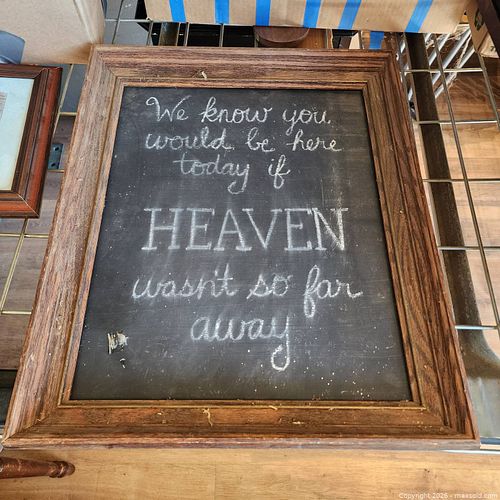 We know you
would be here
today if
HEAVEN
wasn't so far
away
Copyright 2026 - maxsold.com